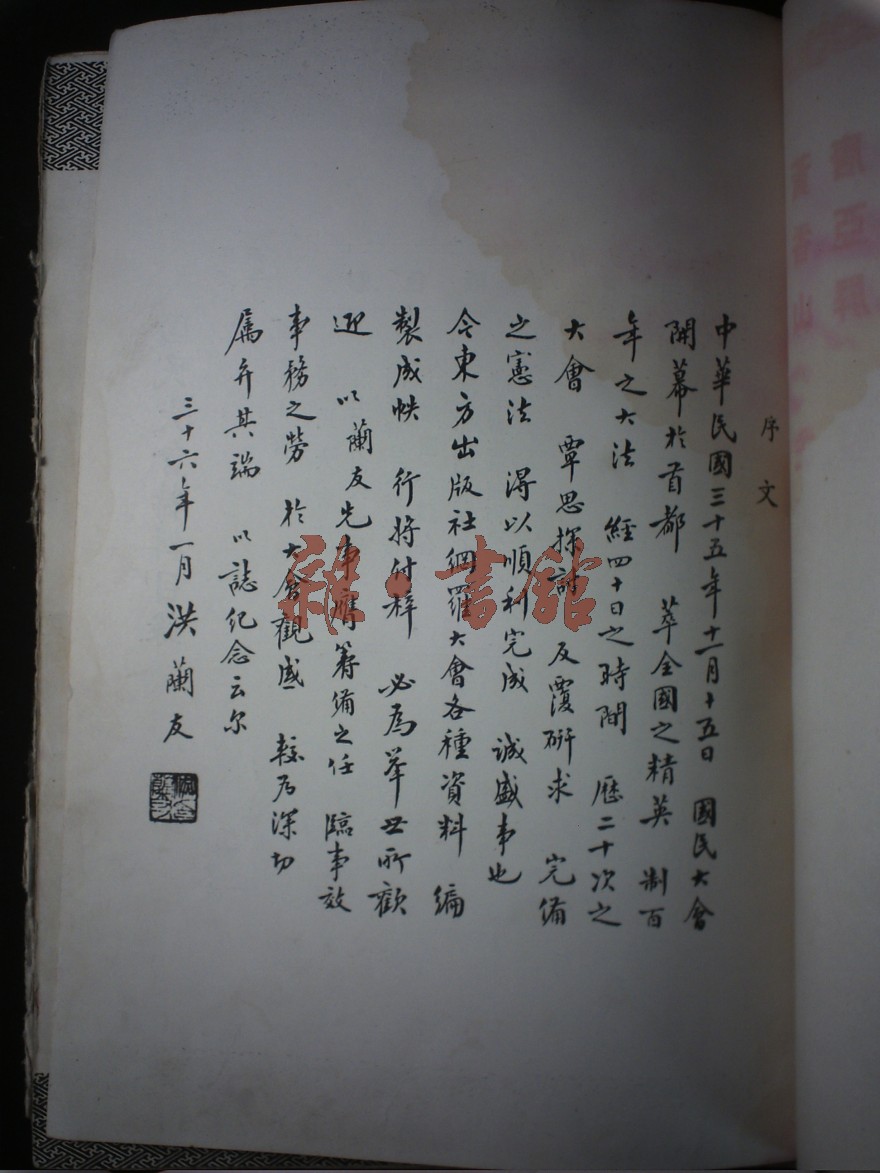 序文
中華民國三十五年十一月十五日 國民大會
開幕於首都 萃全國之精英 制百
年之大法 經四十日之時間 歷二十次之
大會 覃思探討 反覆研求 完備
之憲法 得以順利完成 誠盛事也
今東方出版社網羅大會各種資料 編
製成帙 行將付梓 必為舉世所歡
迎 以蘭友先事膺籌備之任 臨事效
事務之勞 於大會觀感 較為深切
屬弁其端 以誌紀念云尔
三十六年一月 洪蘭友
雜·書館